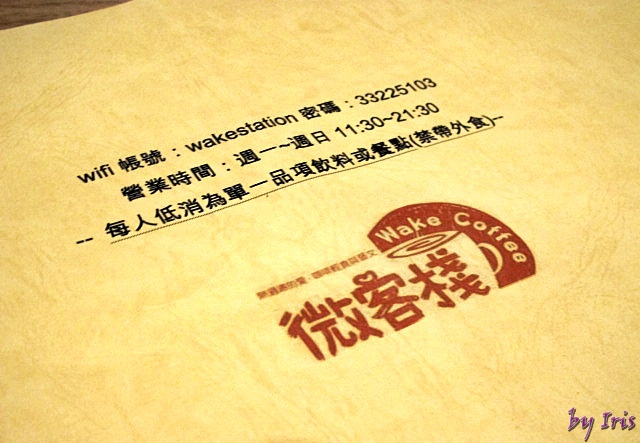 wifi 帳號：wakestation 密碼：33225103
營業時間：週一~週日 11:30~21:30
-- 每人低消為單一品項飲料或餐點(禁帶外食)--
Wake Coffee
微客棧
by Iris